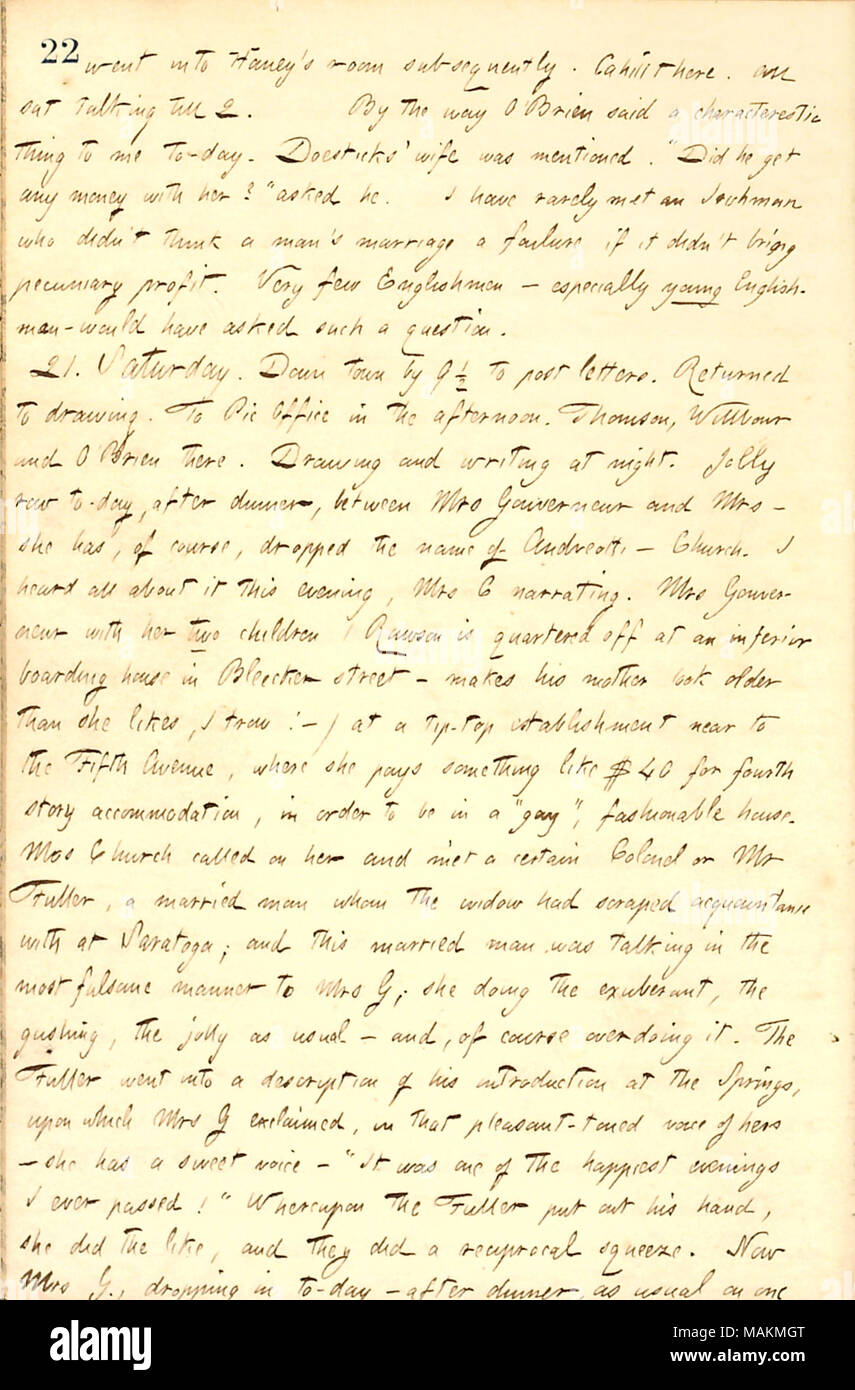 22 went into Haney's room subsequently. Cahill there. All
sat talking till 2. By the way O'Brien said a characterestic
thing to me to-day. Doesticks' wife was mentioned. "Did he get
any money with her?" asked he. I have rarely met an Irishman
who didn't think a man's marriage a failure if it didn't bring
pecuniary profit. Very few Englishmen — especially young English-
man — would have asked such a question.
21. Saturday. Down town by 9 1/2 to post letters. Returned
to drawing. To Pic Office in the afternoon. Thomson, Wilbour
and O'Brien there. Drawing and writing at night. Jolly
row to-day, after dinner, between Mrs Gouverneur and Mrs —
she has, of course, dropped the name of Andreotti — Church. I
heard all about it this evening, Mrs C narrating. Mrs Gouver-
neur with her two children (Rawson is quartered off at an inferior
boarding house in Bleecker street — makes his mother look older
than she likes, I trow! —) at a tip-top establishment near to
the Fifth Avenue, where she pays something like $40 for fourth
story accommodation, in order to be in a "gay", fashionable house.
Mrs Church called on her and met a certain Colonel or Mr
Fuller, a married man whom the widow had scraped acquaintance
with at Saratoga; and this married man was talking in the
most fulsome manner to Mrs G; she doing the exuberant, the
gushing, the jolly as usual — and, of course overdoing it. The
Fuller went into a description of his introduction at the Springs,
upon which Mrs G exclaimed, in that pleasant-toned voice of hers
— she has a sweet voice — "It was one of the happiest evenings
I ever passed!" Whereupon the Fuller put out his hand,
she did the like, and they did a reciprocal squeeze. Now
Mrs G., dropping in to-day — after dinner, as usual on one
alamy
Image ID: MAKMGT
www.alamy.com